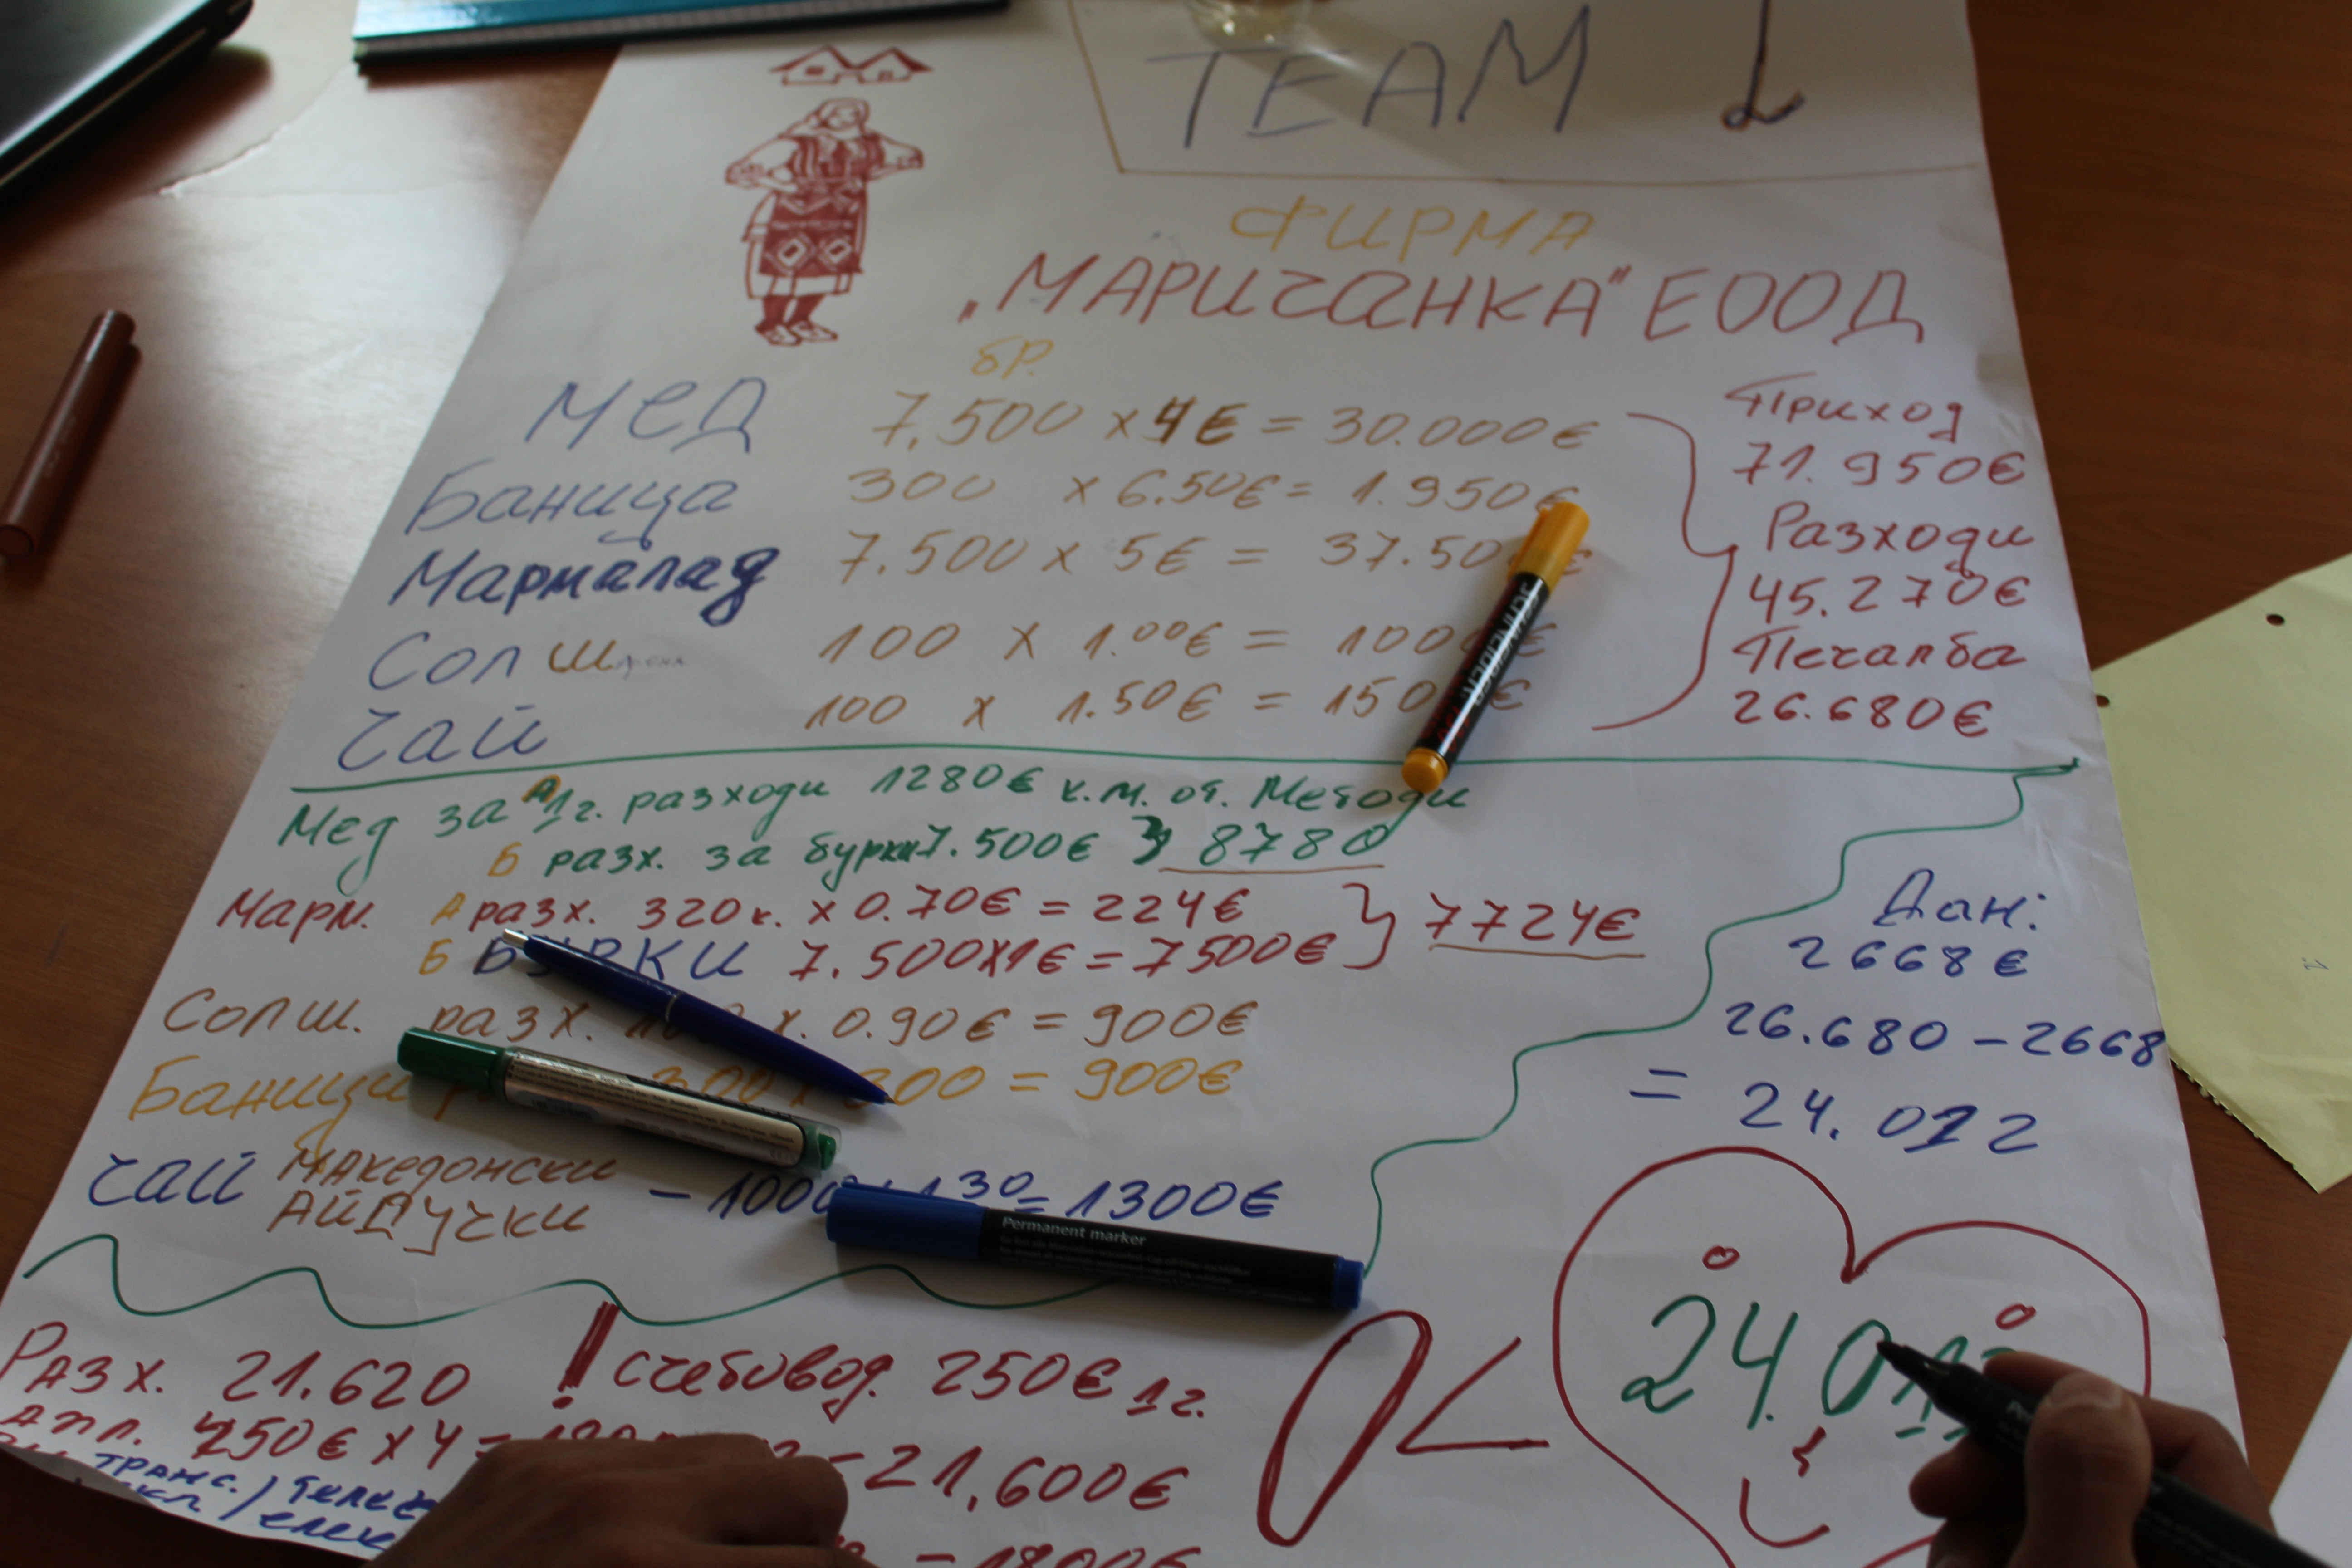 TEAM 1
ФИРМА
„МАРИЧАНКА" ЕООД
бр.
МЕД 7,500 x 4€ = 30.000€
Баница 300 x 6.50€ = 1.950€
Мармалад 7.500 x 5€ = 37.50
Сол ш 100 x 1.00€ = 100
чай 100 x 1.50€ = 150
Приход
71.950€
Разходи
45.270€
Печалба
26.680€
Мед за А 1г. разходи 1280€ к.м. от. Методи
Б разх. за бурки 7.500€ } 8780
Марм. А разх. 320к. x 0.70€ = 224€ } 7724€
Б БУРКИ 7.500x1€ = 7500€
Сол ш. разх. x. 0.90€ = 900€
Баници 300 x 300 = 900€
чай МАКедонски - 1000 x 1.30 = 1300€
АЙДУЧКИ
Дан:
2668€
26.680 - 2668
= 24.012
24.01
Разх. 21.620 ! счетовод. 250€ 1г.
апл. 450€ x 4 = = 21,600€
транс. /
/ елек
= 1800€